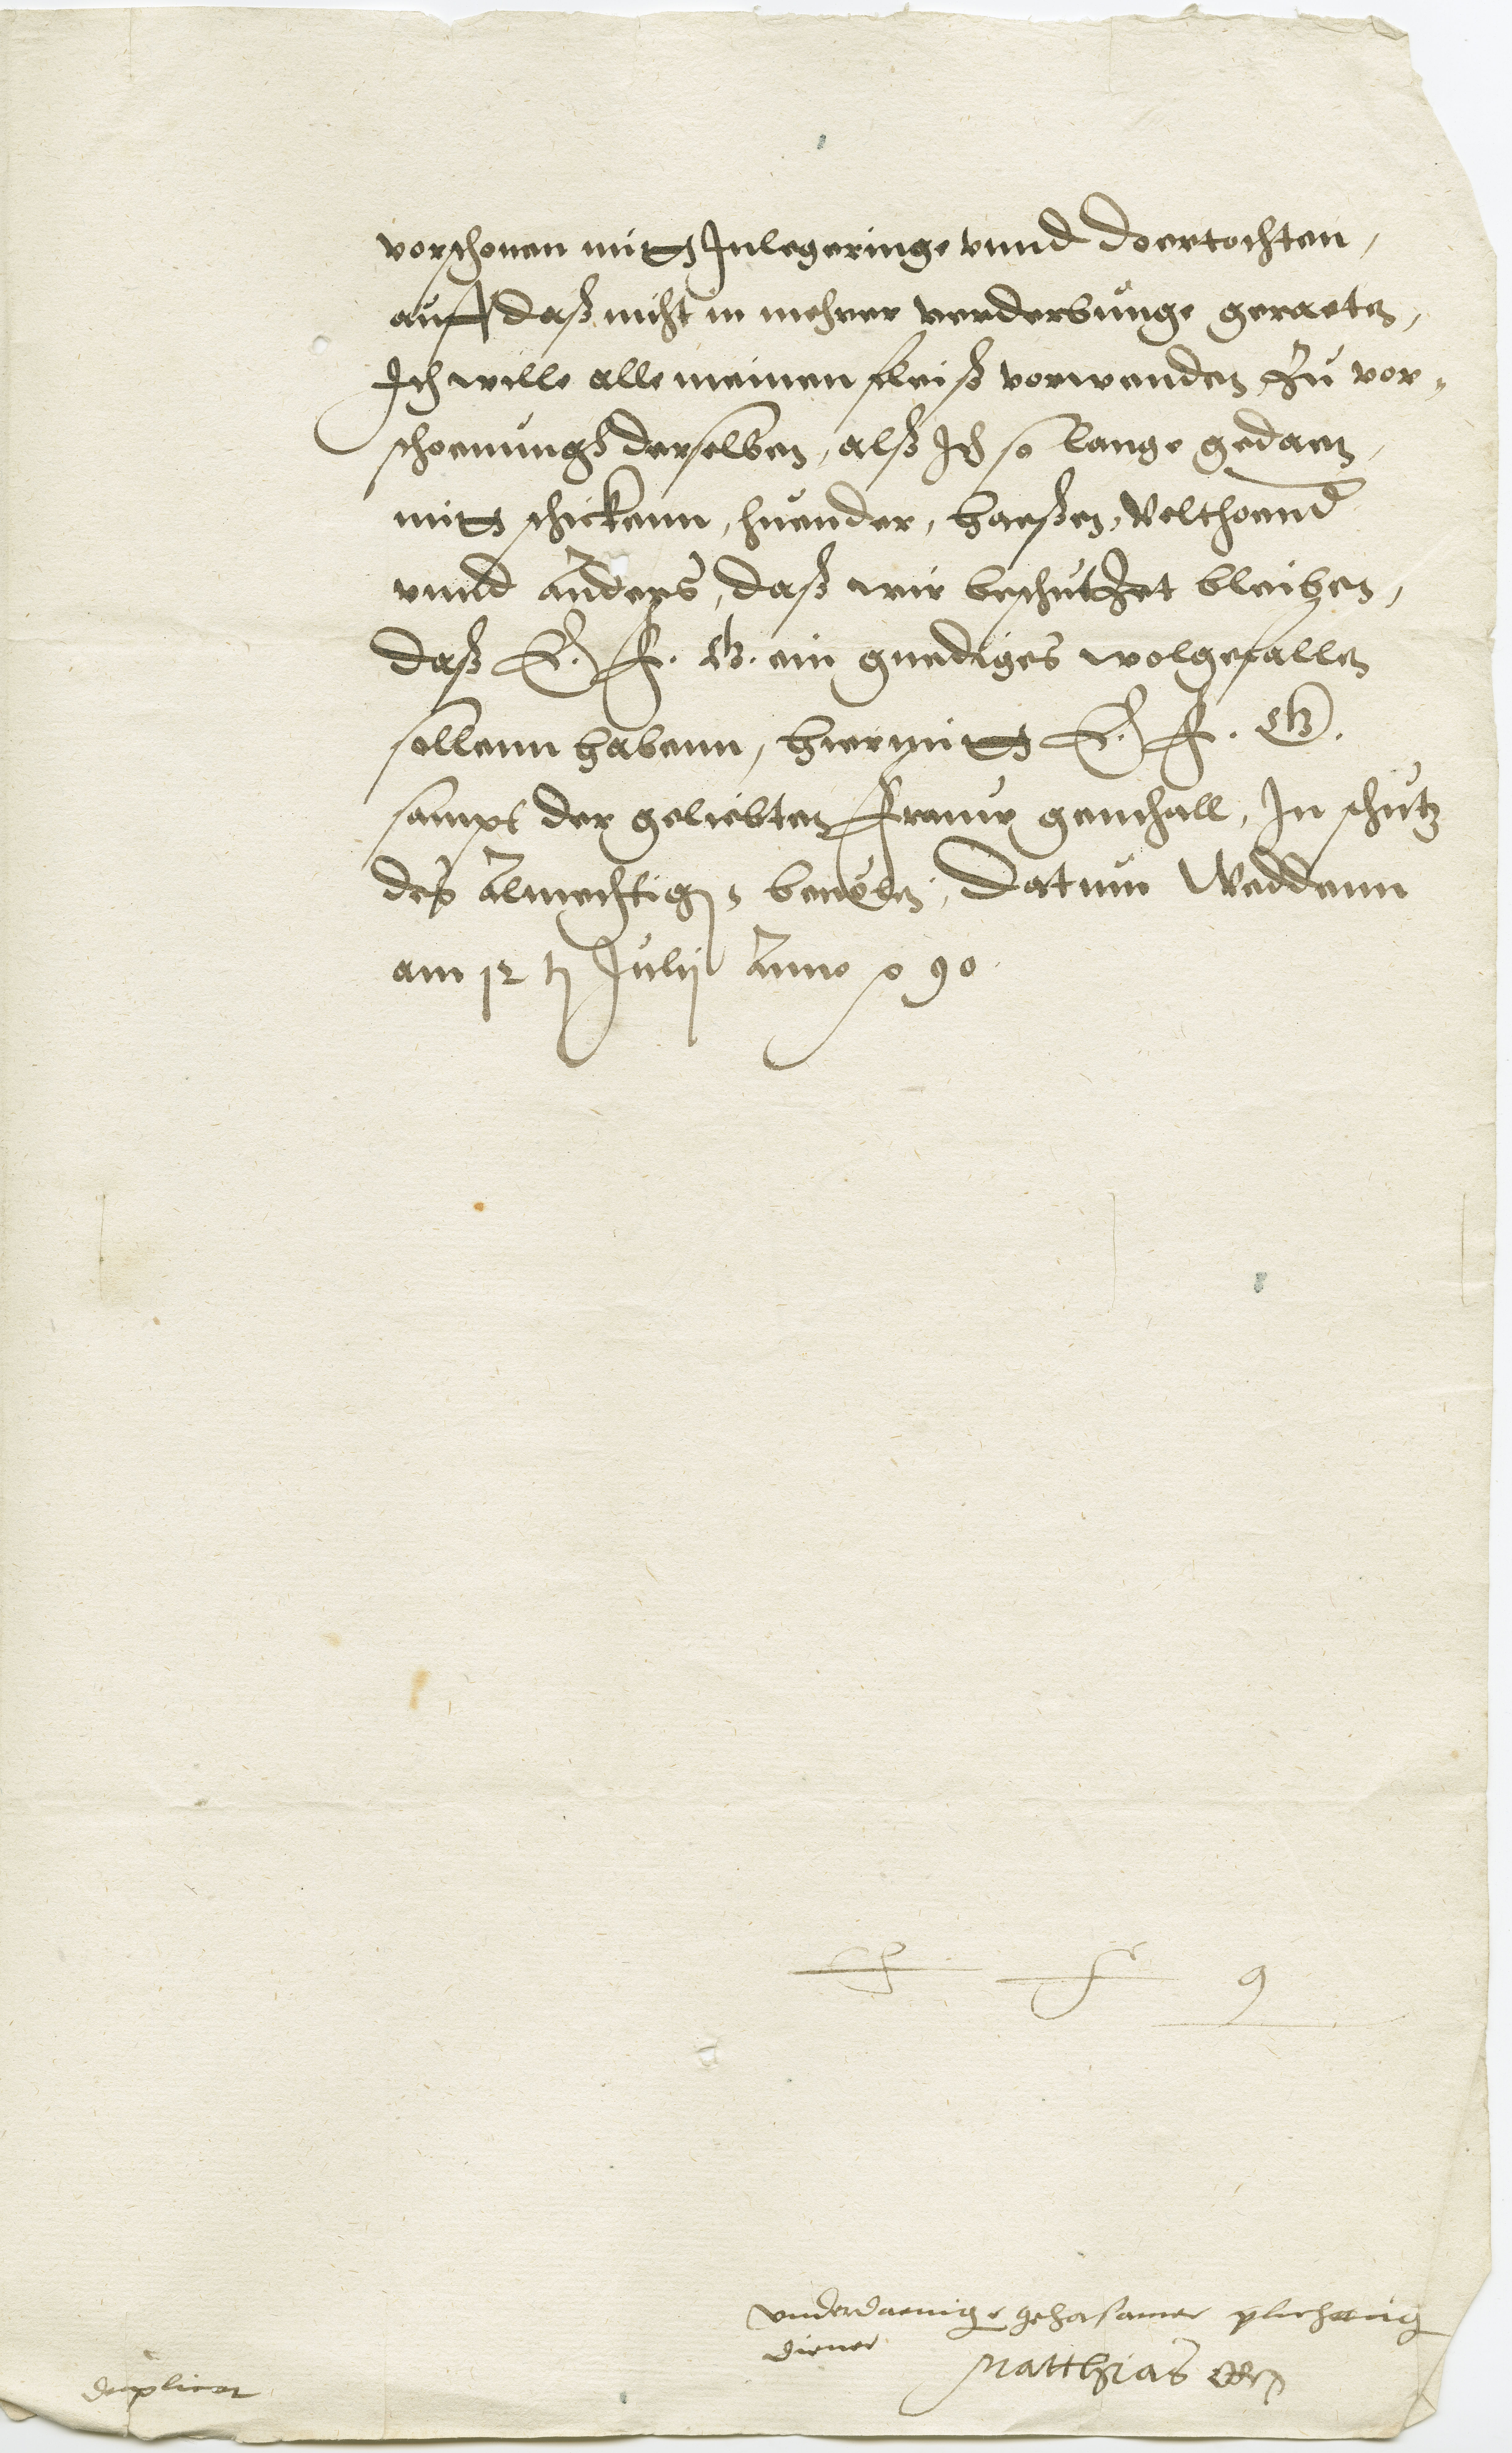 vorschonen mitt Inlegeringe vnnd doertochten,
auff daß nicht in mehrer verderbunge geraeten,
Ich wille alle meinen fleiß vorwenden zu vor-
schoenungh derselben, alß Ich so lange gedaen,
mitt schickenn, huender, haeßen, Velthoend
vnnd anders, daß wir beschutzet bleiben,
daß E. F. G. ein gnediges wolgefallen
sollenn habenn, hiermitt E. F. G.
sampt der geliebten Frauw gemhall, In schutz
des Almechtigen beuelen, Datum Weddenn
am 12 t Julij Anno 90
E F G
vnderdaenige gehorsamer plichttig
diener Matthias
duplicat